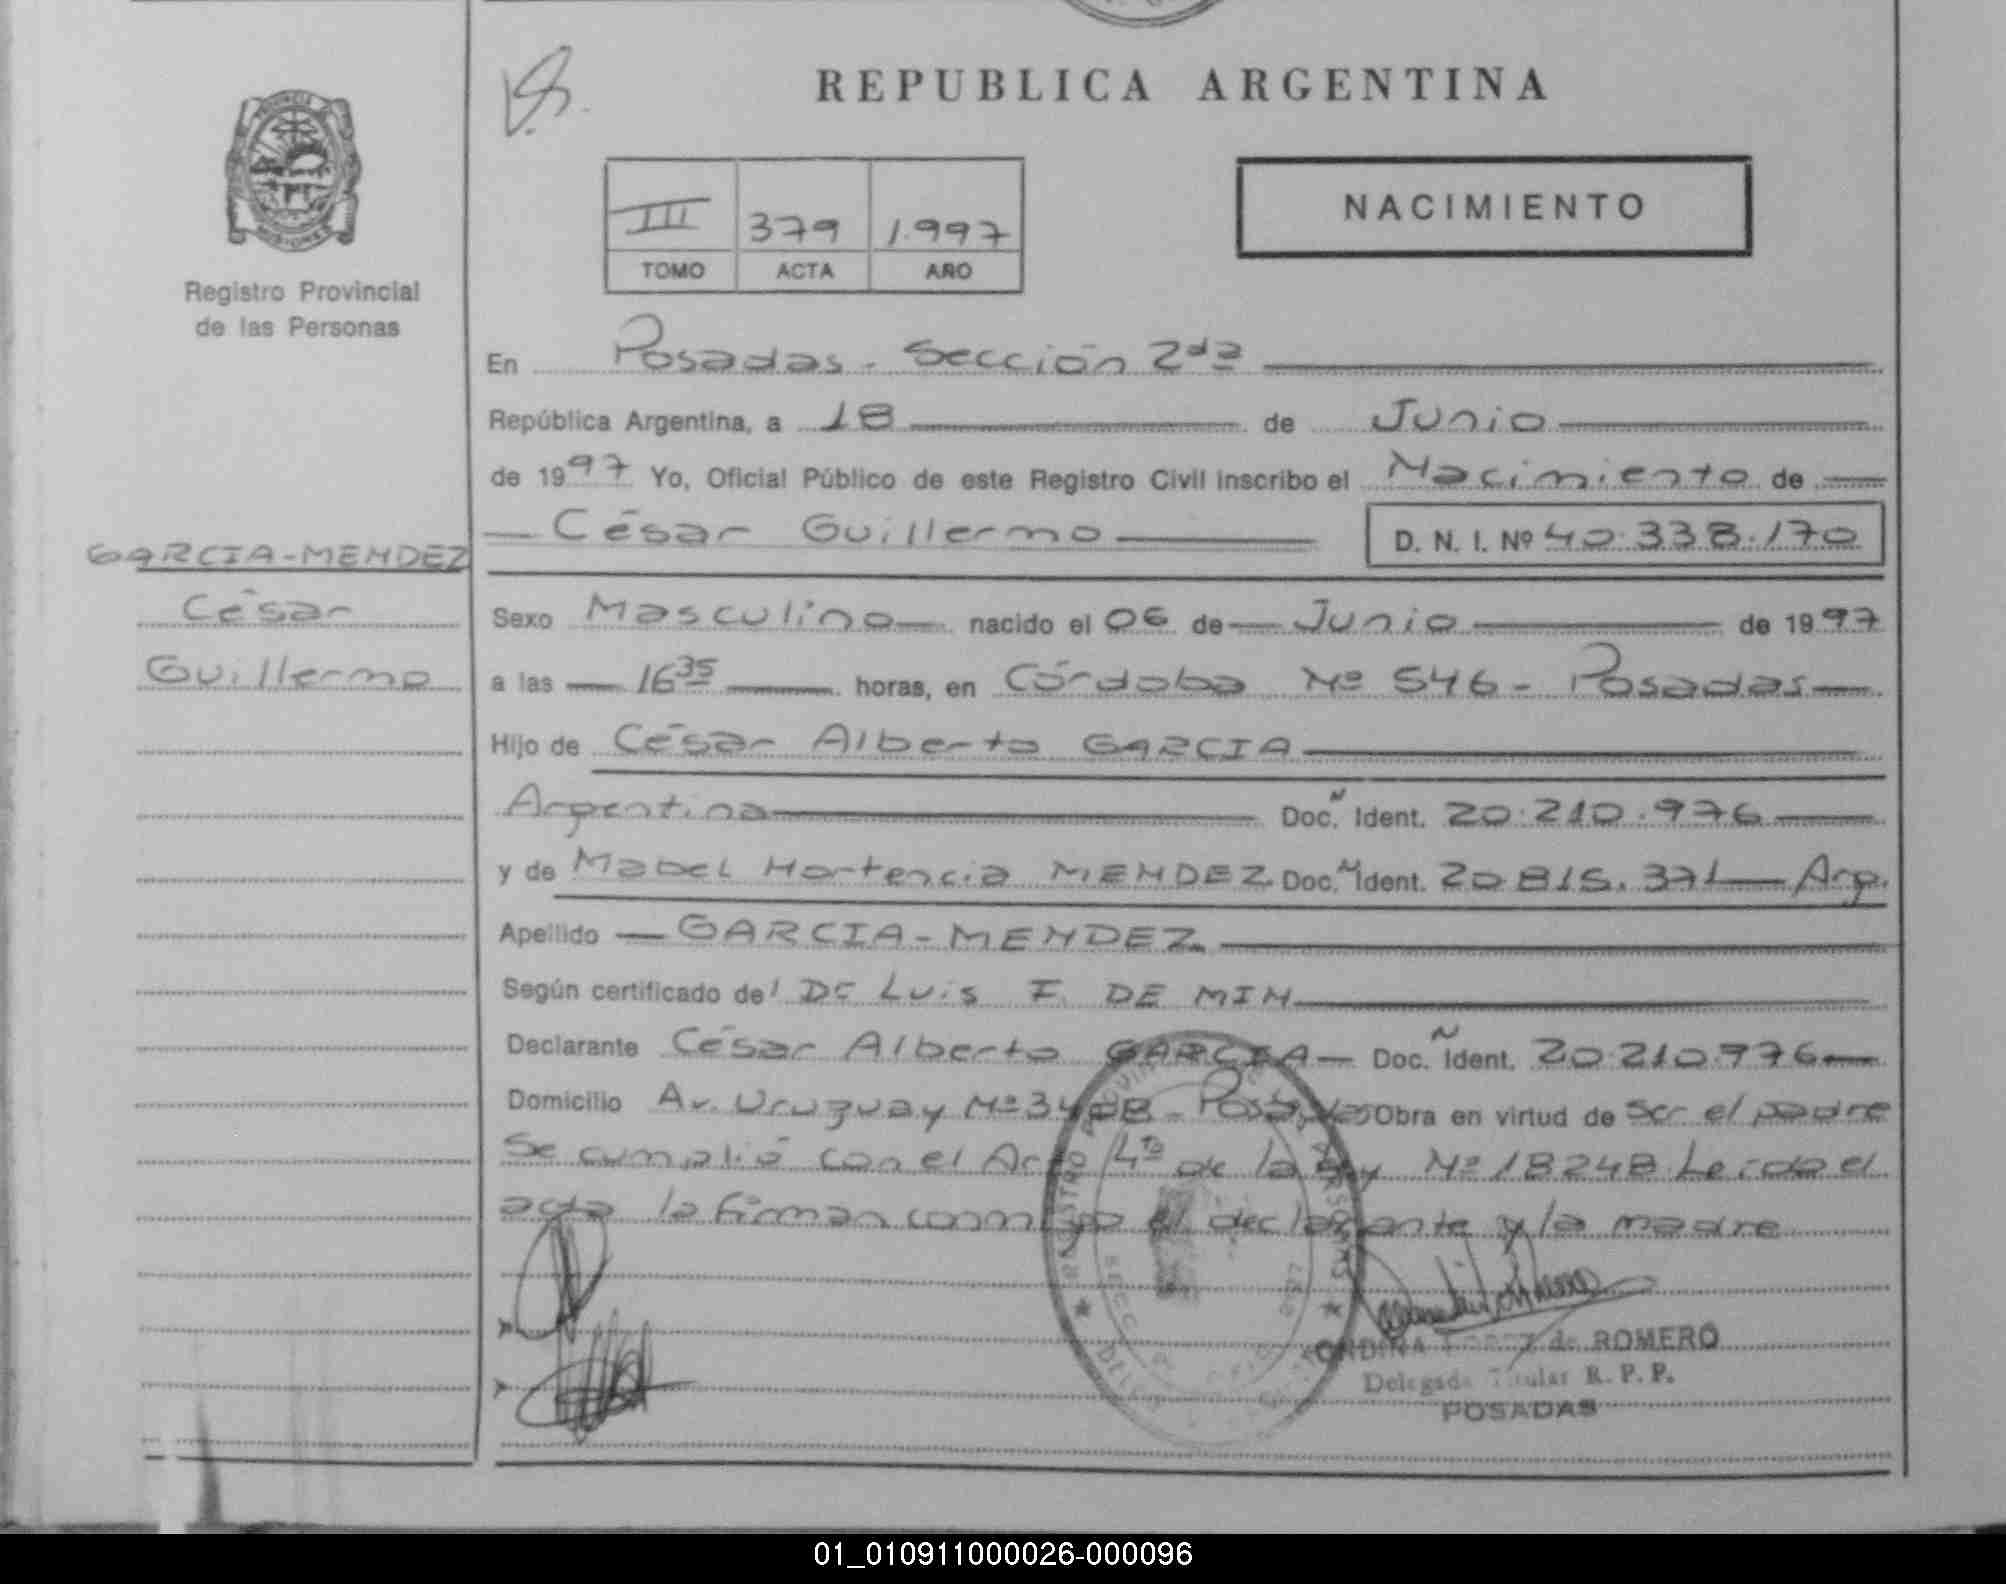 REPUBLICA ARGENTINA
PROVINCIA DE
MISIONES
Registro Provincial
de las Personas
III 379 1.997
TOMO ACTA AÑO
NACIMIENTO
En Posadas - Sección 2da
República Argentina, a 18 de Junio
de 1997 Yo, Oficial Público de este Registro Civil inscribo el Nacimiento de
César Guillermo D. N. I. Nº 40.338.170
GARCIA-MENDEZ
César
Guillermo
Sexo Masculino nacido el 06 de Junio de 1997
a las 16 35 horas, en Córdoba Nº 546 - Posadas
Hijo de César Alberto GARCIA
Argentina Doc. Ident. 20.210.976
y de Mabel Hortencia MENDEZ Doc. Ident. 20.815.371 Arg.
Apellido GARCIA-MENDEZ
Según certificado de Dr Luis F. DE MIN
Declarante César Alberto GARCIA Doc. Ident. 20.210.976
Domicilio Av. Uruguay Nº Posadas Obra en virtud de ser el padre
Se cumplió con el Arto 4º de la Ley Nº 18248 Leída el
acta la firman conmigo el declarante y la madre
ONDINA de ROMERO
Delegada Titular R. P. P.
POSADAS
01_010911000026-000096